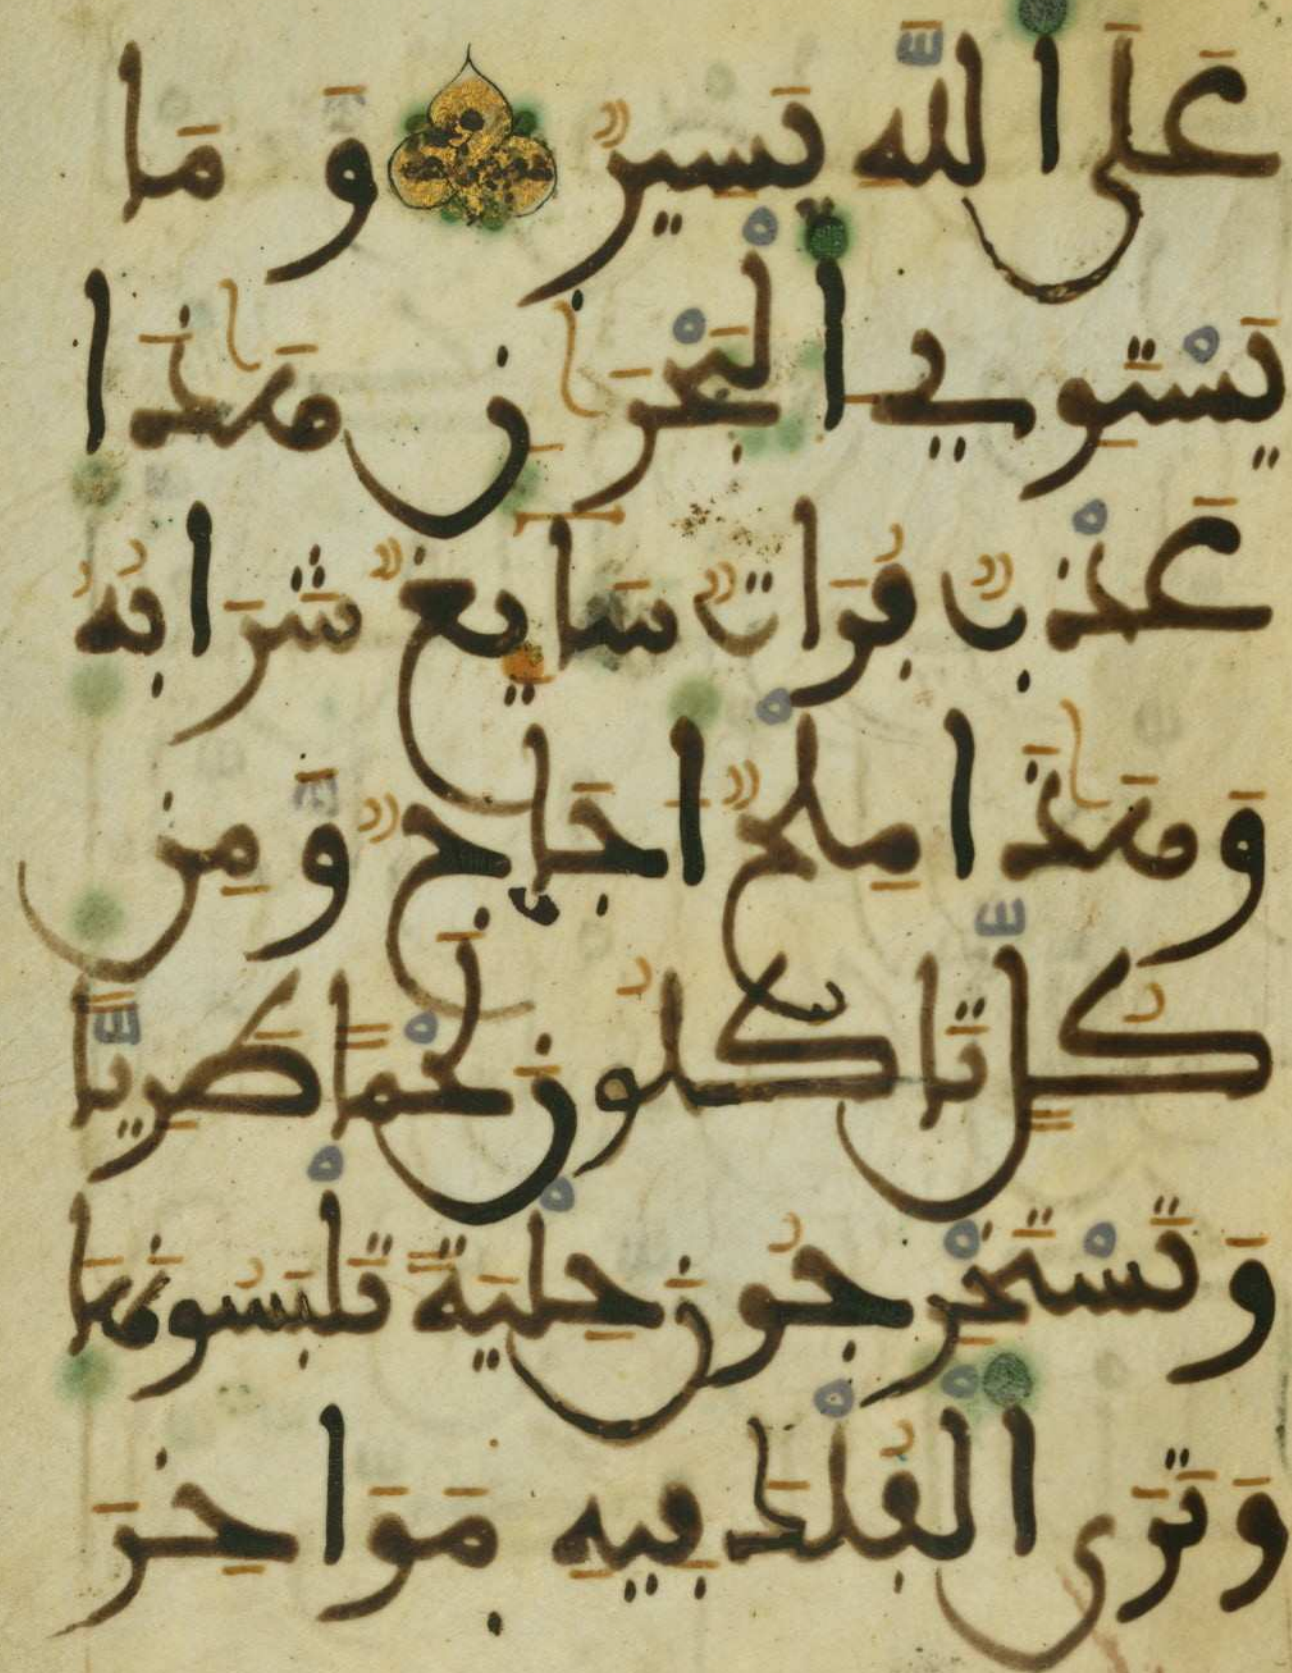 عَلَى اللَّهِ يَسِيرٌ وَّمَا
يَسْتَوِي الْبَحْرَٰنِ هَٰذَا
عَذْبٌ فُرَاتٌ سَآيِغٌ شَرَابُهُ
وَهَٰذَا مِلْحٌ اجَاجٌ وَّمِن
كُلٍّ تَاكُلُونَ لَحْمًا طَرِيًّا
وَتَسْتَخْرِجُونَ حِلْيَةً تَلْبَسُونَهَا
وَتَرَى الْفُلْكَ فِيهِ مَوَاخِرَ